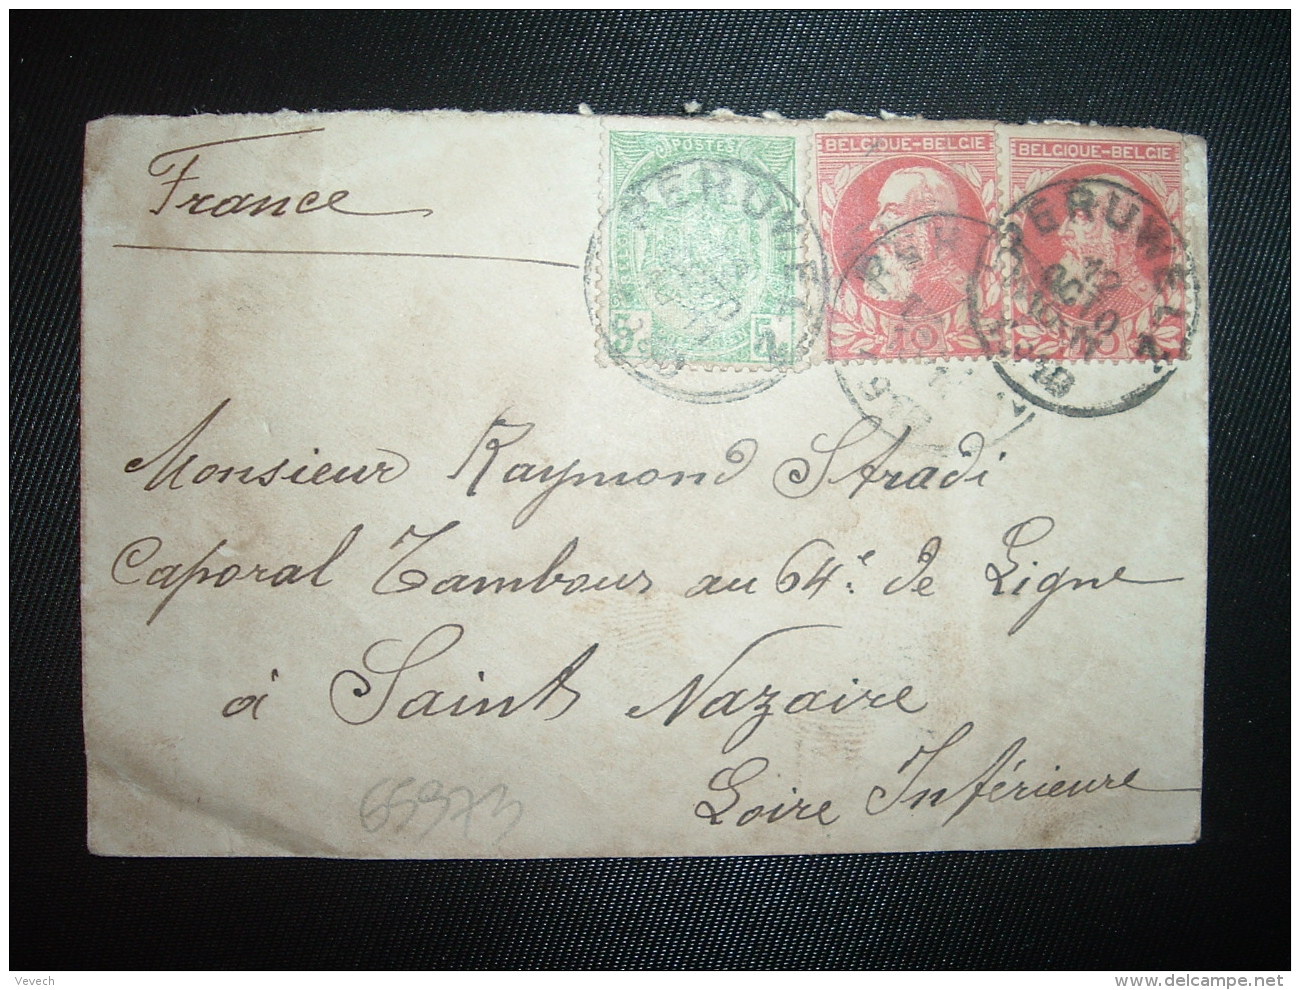 France
POSTES
5 5
BELGIQUE-BELGIE
10
BELGIQUE-BELGIE
10
PERUWELZ
PERUWELZ
12
OCT
1910
Monsieur Raymond Stradi
Caporal Tambour au 64e de Ligne
à Saint Nazaire
Loire Inférieure
65973
Vevech
delcampe.net